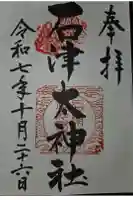 奉拝
石津太神社
令和七年十月二十六日